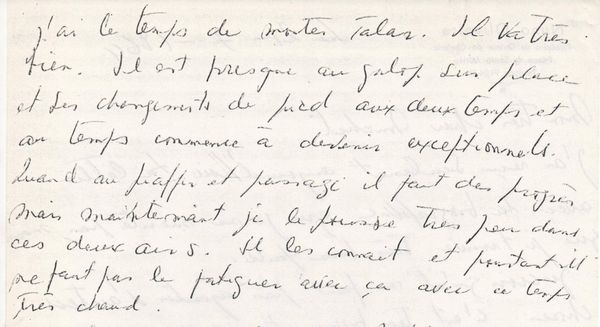 j'ai le temps de monter Talar. Il va très
bien. Il est presque au galop sur place
et ses changements de pied aux deux temps et
au temps commence à devenir exceptionnels.
Quand au piaffer et passage il fait des progrès
mais maintenant je le pousse très peu dans
ces deux airs. Il les connait et pourtant il
ne faut pas le fatiguer avec ça avec ce temps
très chaud.